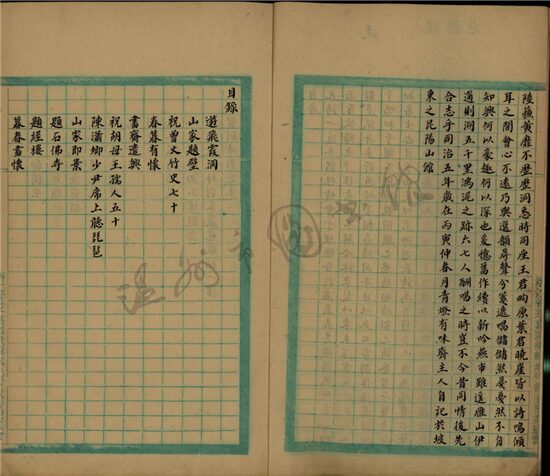 陸蘋黃靡不歷歷洞悉時同座王君昫原葉君曉崖皆以詩鳴頌
耳之間會心不遠乃與選韻尋聲分箋遠唱儲儲然晏晏然不自
知興何以豪趣何以深也爰憶舊作續以新吟燕市雖遙雁山伊
邇則洞五千里鴻泥之跡六七人酬唱之時豈不今昔同情後先
合志乎同治五年歲在丙寅仲春月青燈有味齋主人自記於坡
東之昆陽山館
目錄
遊紫霞洞
山家題壁
祝曾文竹史七十
春暮有懷
書齋遣興
祝胡母王孺人五十
陳瀟卿少尹席上聽琵琶
山家即景
題石佛寺
題經摟
暮春書懷
溫州市圖書館